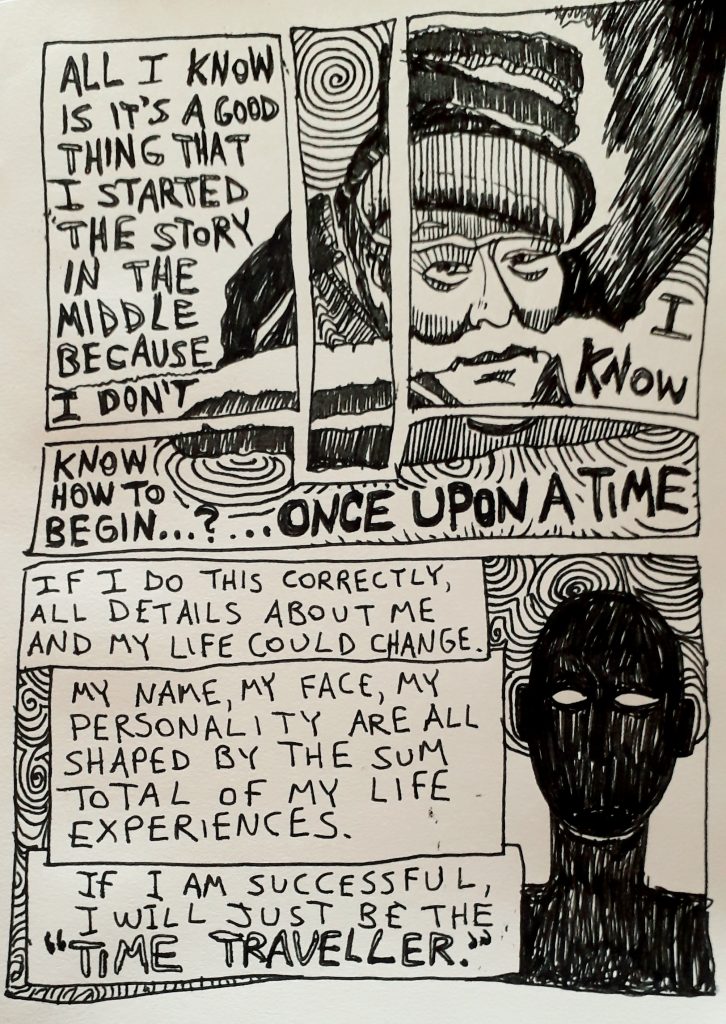 ALL I KNOW
IS IT'S A GOOD
THING THAT
I STARTED
THE STORY
IN THE
MIDDLE
BECAUSE
I DON'T
I
KNOW
KNOW
HOW TO
BEGIN...?...ONCE UPON A TIME
IF I DO THIS CORRECTLY,
ALL DETAILS ABOUT ME
AND MY LIFE COULD CHANGE.
MY NAME, MY FACE, MY
PERSONALITY ARE ALL
SHAPED BY THE SUM
TOTAL OF MY LIFE
EXPERIENCES.
IF I AM SUCCESSFUL,
I WILL JUST BE THE
"TIME TRAVELLER."